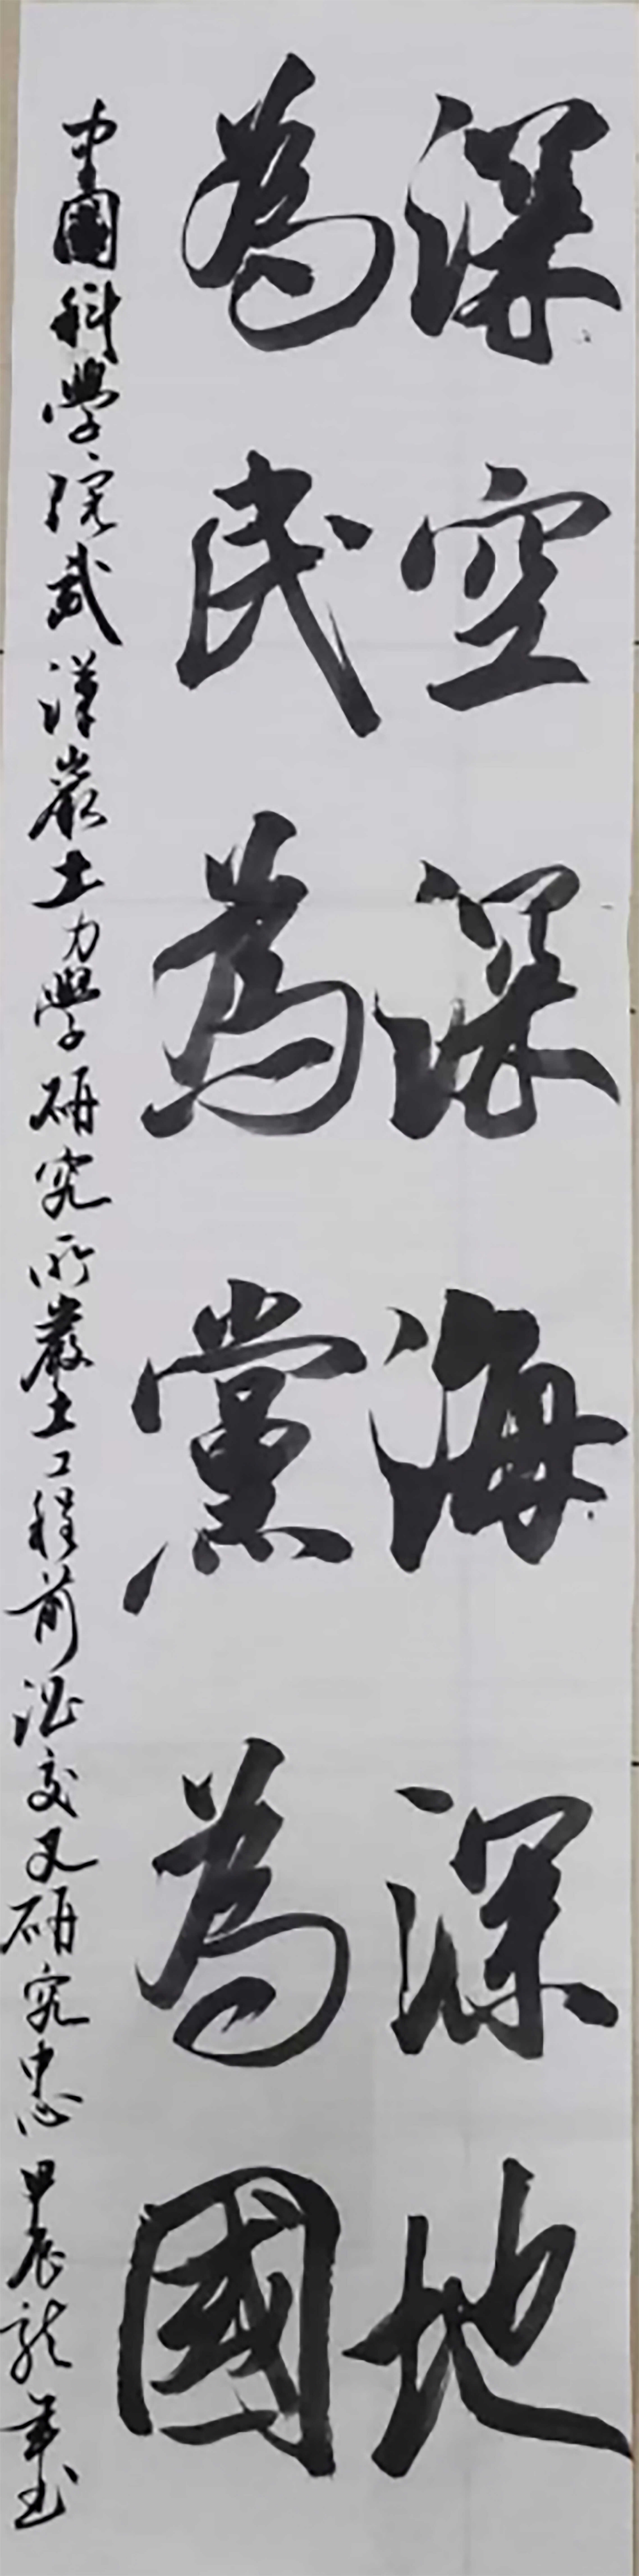 深空深海深地
為民為黨為國
中國科學院武漢巖土力學研究所巖土工程前沿交叉研究中心 甲辰龍年書